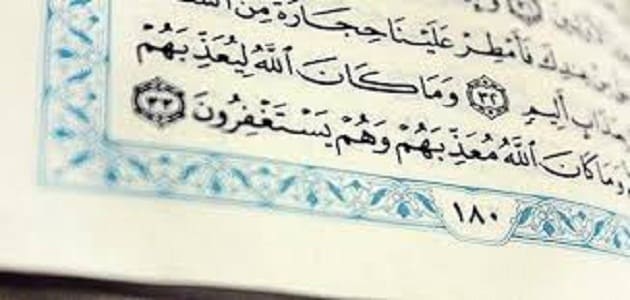 عِندِكَ فَأَمْطِرْ عَلَيْنَا حِجَارَةً مِّنَ
عَذَابٍ أَلِيمٍ ٣٢ وَمَا كَانَ ٱللَّهُ لِيُعَذِّبَهُمْ
وَمَا كَانَ ٱللَّهُ مُعَذِّبَهُمْ وَهُمْ يَسْتَغْفِرُونَ ٣٣
١٨٠